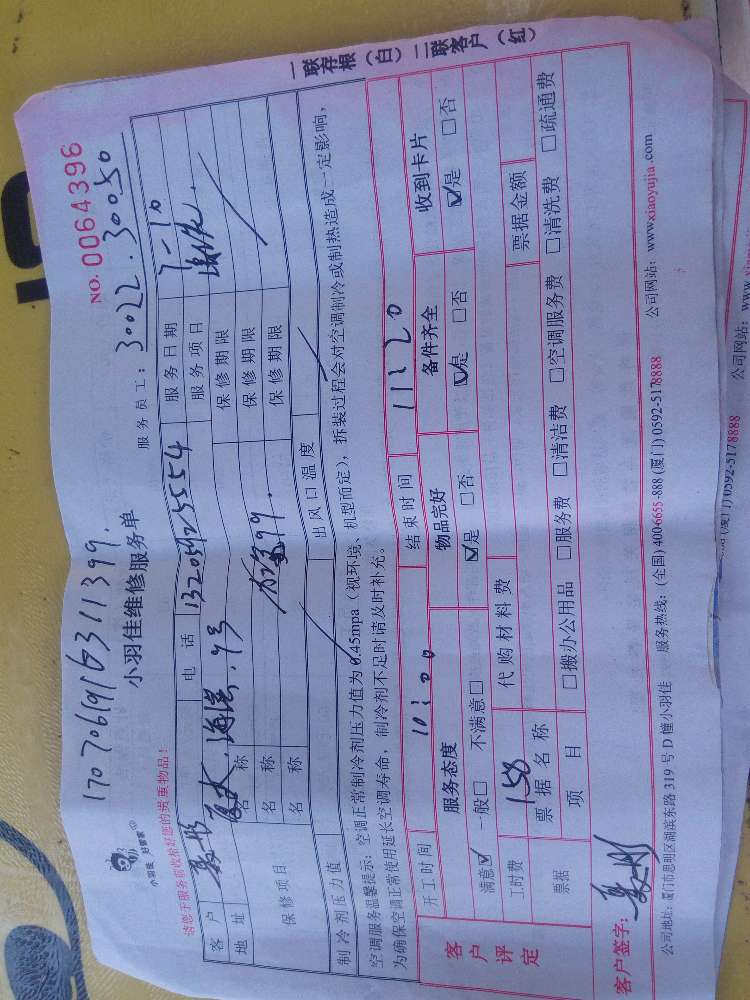 17070619163111399.
NO. 0064396
小羽佳 好管家
小羽佳维修服务单
服务员工: 30022.30050
请您于服务前收拾好您的贵重物品!
客户 电话 13205925554 服务日期 7-10
地址 服务项目
保修项目 名称 保修期限
名称 保修期限
名称 保修期限
制冷剂压力值 出风口温度
空调服务温馨提示: 空调正常制冷剂压力值为0.45mpa (视环境、机型而定), 拆装过程会对空调制冷或制热造成一定影响,
为确保空调正常使用延长空调寿命, 制冷剂不足时请及时补充。
开工时间 10:00 结束时间 11:20
客户评定 服务态度 物品完好 备件齐全 收到卡片
满意☑ 一般□ 不满意□ ☑是 □否 ☑是 □否 ☑是 □否
工时费 158 代购材料费
票据 票据名称 票据金额
项目 □搬办公用品 □服务费 □清洁费 □空调服务费 □清洗费 □疏通费
客户签字:
公司地址: 厦门市思明区湖滨东路 319 号 D 幢小羽佳 服务热线: (全国) 400-6655-888 (厦门) 0592-5178888 公司网站: www.xiaoyujia.com
一联存根 (白) 二联客户 (红)
(厦门) 0592-5178888 公司网站: www